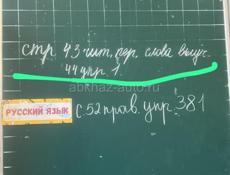 стр. 43 чит. пер. слова выуч.
44 упр 1.
abkhaz-auto.ru
РУССКИЙ ЯЗЫК
с. 52 прав. упр. 381